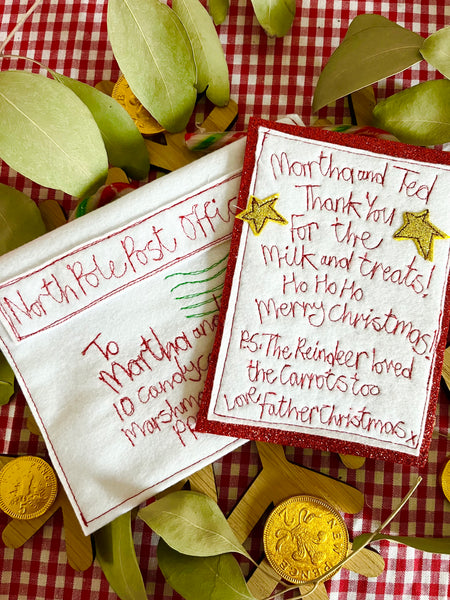 North Pole Post Offic
To
Martha and
10 Candyc
Marshm
PP
Martha and Ted
Thank You
For the
Milk and treats!
Ho Ho Ho
Merry Christmas!
PS: The Reindeer loved
the Carrots too
Love, Father Christmas x